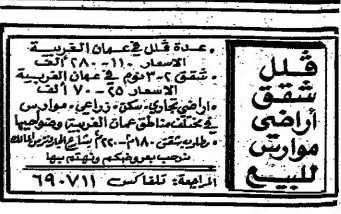 فلل
شقق
أراضي
موارس
للبيع
• عدة فلل في عمان الغربية
الاسعار ١١٠ - ٢٨٠ ألف
• شقق ٢-٣ نوم في عمان الغربية
الاسعار ٢٥ - ٧٠ ألف
• اراضي تجاري - سكن - زراعي - موارس
في مختلف مناطق عمان الغربية وضواحيها
• مطلوب شقق ١٨٠م - ٢٢٠م بشارع
نرحب بعروضكم ونهتم بها
المراجعة: تلفاكس ٦٩٠٧١١